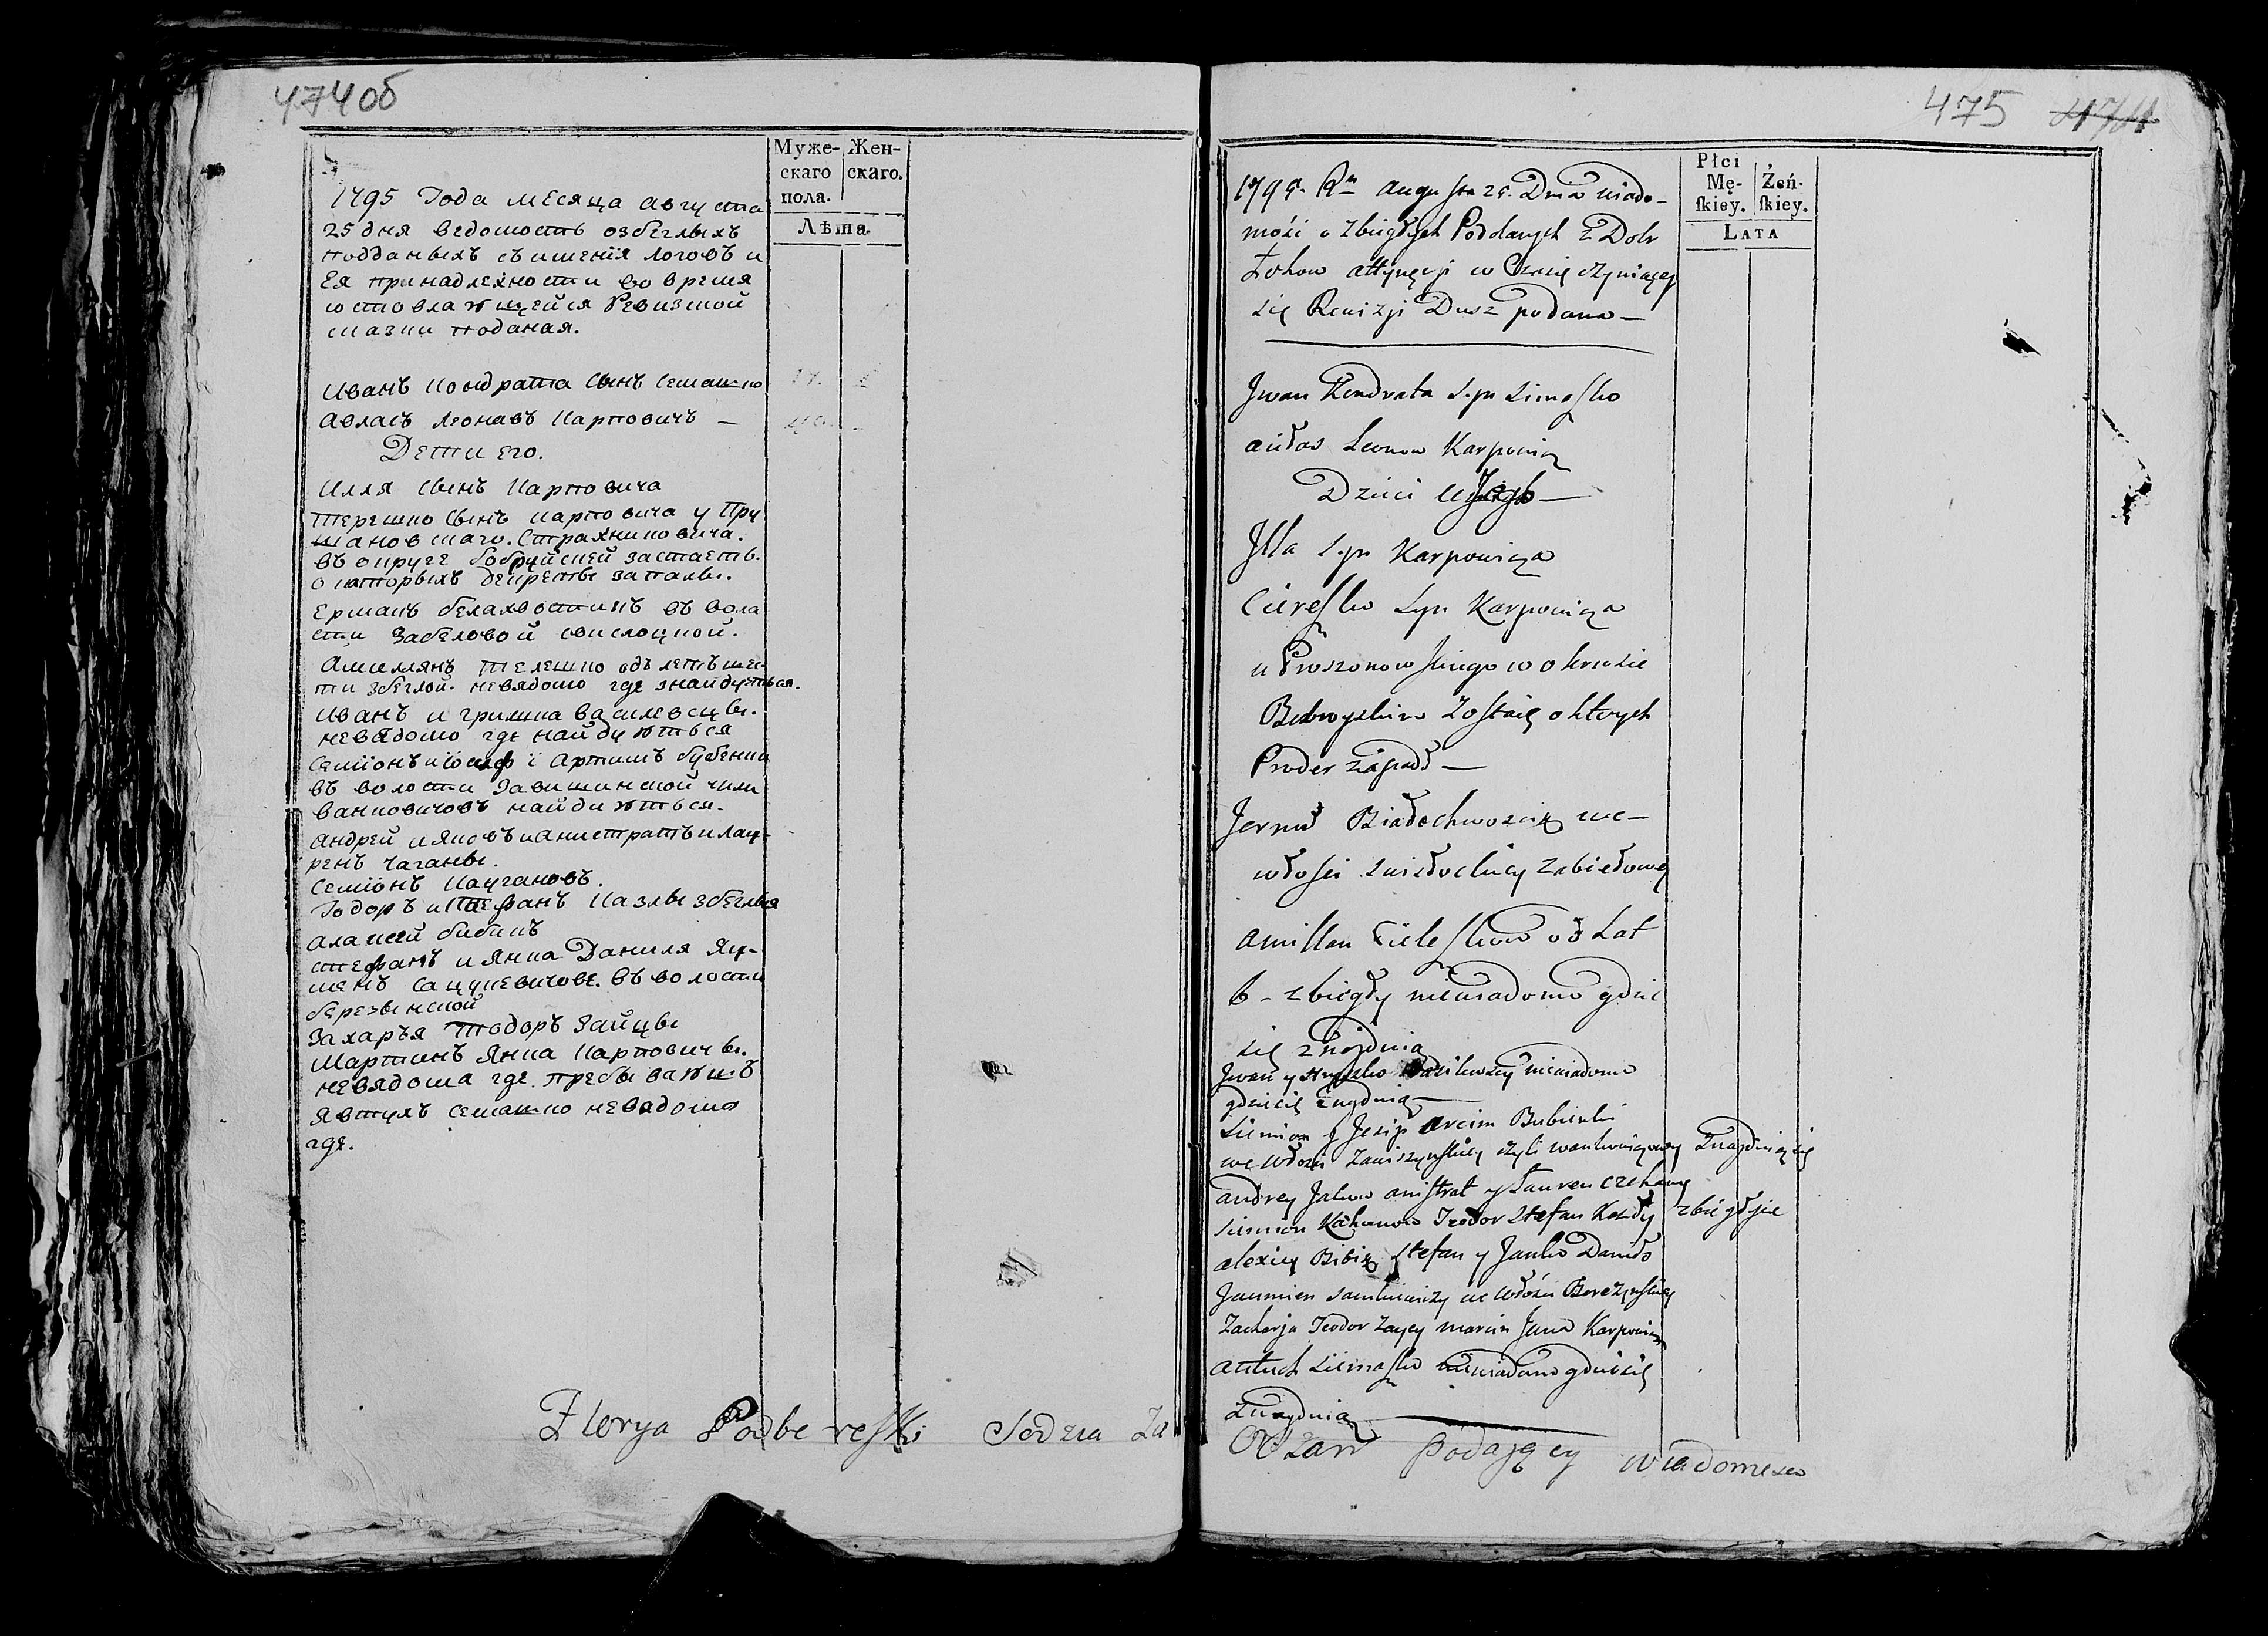 474об
Муже-
скаго
пола.
Жен-
скаго.
Лѣта.
1795 Года месяца августа
25 дня ведомость озбеглыхъ
подданыхъ съ имения Логовъ и
Ея принадлежности во время
ревизкой
сказки поданая.
Иванъ Кондрата сынъ Семашко
Авласъ Леоновъ Карповичъ —
Дети его.
Илля сынъ Карповича
Терешко сынъ карповича у Пру
шановскаго. Страхниковича.
въ округе бобруйской застаеть.
о которыхъ декреты запалы.
Ермакъ белахвостикъ въ вола
сти Забеловой свислоцкой.
Амиллянъ Телешко одъ летъ шес-
ти збеглой. невядомо где знайдуеться.
Иванъ и гришка василевсцы.
невядомо где найдуються
Семіонъ и іосиф і Артимъ бубенки
въ волости Завишинской чили
ванковичовъ найдуються.
Андрей и Яковъ и анистратъ и лау-
ренъ чаганы.
Семіонъ Каугановъ.
Тодоръ и Стефанъ Казлы збеглыя
Алаксей бибикъ
стефанъ и Янка Данила Яу-
менъ Сацукевичове. въ волости
березынской
Захарья Тодоръ Зайцы
Мартинъ Янка Карповичы.
невядома где пребываютъ
Явтухъ семашко невядомо
где.
Florya Podbereski Sędzia Za
475
Płci
Mę-
ſkiey.
Żeń-
ſkiey.
LATA
1795. Ru Augusta 25. Dnia wiado-
mość o Zbiegłych Poddanych z Dobr
Łohow attynęcyi w Czasie czyniącey
się Rewizyi Dusz podana —
Jwan Kondrata Syn Simaszko
Aułas Leonow Karpowicz
Dzieci
Jlla Syn Karpowicza
Cireszko Syn Karpowicza
u Proszonowskiego w okruzie
Bobruyskim Zostaię o ktorych
Zapadł —
Jermak Białochwościk we —
włości Swisłockiey Zabiełowey
Amillan Cieleszko od Lat
6 - zbiegły niewiadomo gdzie
się znayduią
Jwan y Hryszko Wasilewscy niewiadomo
gdzie się znayduią —
Siemion y Jezip Arcim Bubienki
we Włości Zawiszynskiey czyli wankowiczowey Znayduią się
Andrey Jakow Anistrat y Łauren Czehany
Siemion Kauhanow Teodor Stefan Kozły zbiegłyie
Alexiey Bibik Stefan y Janko Daniło
Jaumien Sacukiewiczy we Włości Berezynskiey
Zacharja Teodor Zaycy Marcin Janko Karpowicz
Autuch Siemaszko niewiadomo gdzie się
Znayduią —
Podaęcy wiadomosc